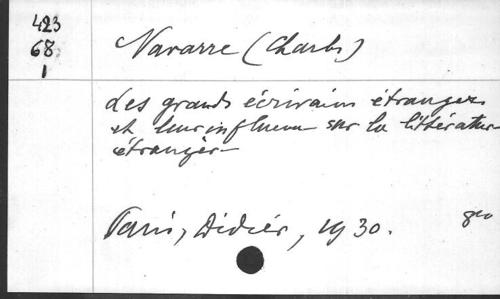 423
68
1
Navarre (Charles)
Les grands écrivains étrangers
et leur influence sur la littérature
étrangère
Paris, Didier, 1930.
8vo